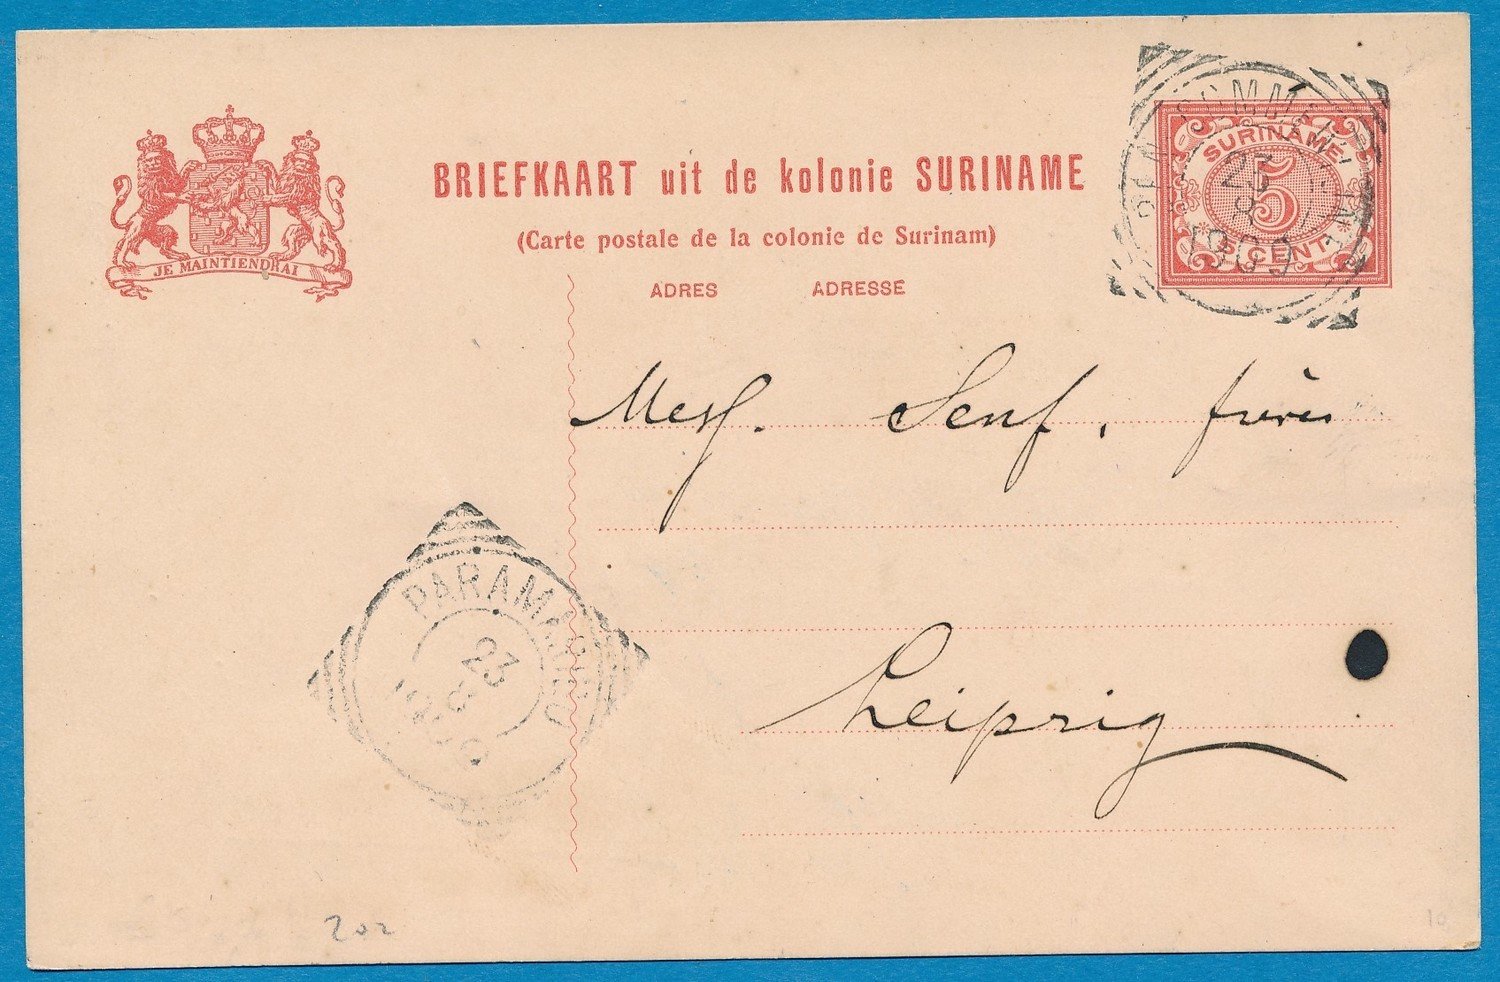 BRIEFKAART uit de kolonie SURINAME
(Carte postale de la colonie de Surinam)
ADRES ADRESSE
JE MAINTIENDRAI
SURINAME
5
5 CENT
23
8
1909
Mess. Senf, frères
Leipzig
PARAMARIBO
23
8
202
10